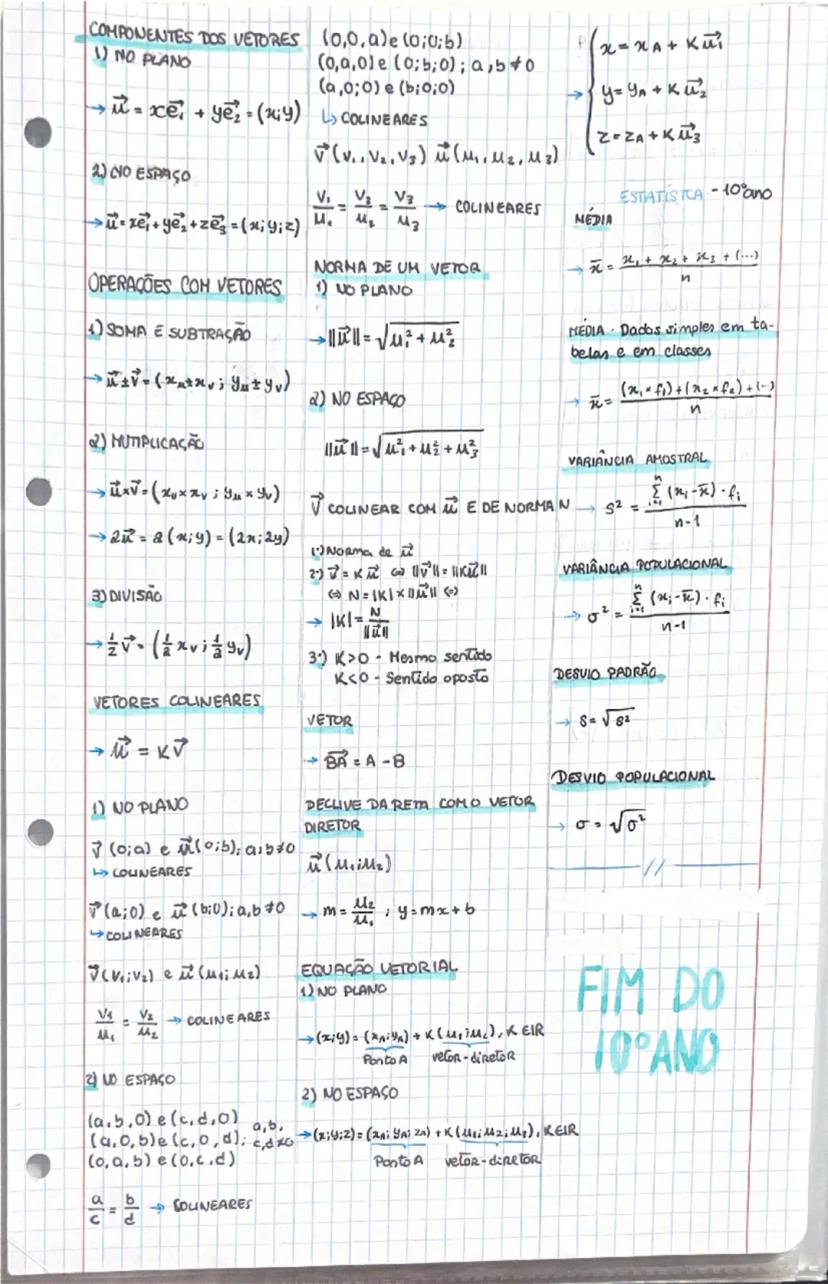 COMPONENTES DOS VETORES
1) NO PLANO
→ u⃗ = xe⃗₁ + ye⃗₂ = (x;y)
2) NO ESPAÇO
→ u⃗ = xe⃗₁ + ye⃗₂ + ze⃗₃ = (x;y;z)
OPERAÇÕES COM VETORES
1) SOMA E SUBTRAÇÃO
→ u⃗ ± v⃗ = (xᵤ ± xᵥ ; yᵤ ± yᵥ)
2) MUTIPLICAÇÃO
→ u⃗ × v⃗ = (xᵤ × xᵥ ; yᵤ × yᵥ)
→ 2u⃗ = 2(x;y) = (2x;2y)
3) DIVISÃO
→ ½ v⃗ = (½ xᵥ ; ½ yᵥ)
VETORES COLINEARES
→ u⃗ = K v⃗
1) NO PLANO
v⃗ (0;a) e u⃗ (0;b); a,b≠0
↳ COLINEARES
v⃗ (a;0) e u⃗ (b;0); a,b ≠0
↳ COLINEARES
v⃗ (v₁;v₂) e u⃗ (u₁;u₂)
v₁/u₁ = v₂/u₂ → COLINEARES
2) NO ESPAÇO
(a,b,0) e (c,d,0)
(a,0,b) e (c,0,d); a,b,c,d≠0
(0,a,b) e (0,c,d)
a/c = b/d → COLINEARES
(0,0,a) e (0;0;b)
(0,a,0) e (0;b;0); a,b≠0
(a,0;0) e (b;0;0)
↳ COLINEARES
v⃗ (v₁,v₂,v₃) u⃗ (u₁,u₂,u₃)
v₁/u₁ = v₂/u₂ = v₃/u₃ → COLINEARES
NORMA DE UM VETOR
1) NO PLANO
→ ||u⃗|| = √(u₁² + u₂²)
2) NO ESPAÇO
||u⃗|| = √(u₁² + u₂² + u₃²)
v⃗ COLINEAR COM u⃗ E DE NORMA N
1º) Norma de u⃗
2º) v⃗ = K u⃗ ⇔ ||v⃗|| = ||Ku⃗||
⇔ N = |K| × ||u⃗|| ⇔
→ |K| = N/||u⃗||
3º) K>0 - Mesmo sentido
K<0 - Sentido oposto
VETOR
→ BA⃗ = A - B
DECLIVE DA RETA COM O VETOR
DIRETOR
u⃗ (u₁;u₂)
→ m = u₂/u₁ ; y = mx + b
EQUAÇÃO VETORIAL
1) NO PLANO
→ (x;y) = (xA;yA) + K(u₁;u₂), K EIR
Ponto A vetor-diretor
2) NO ESPAÇO
→ (x;y;z) = (xA;yA;zA) + K(u₁;u₂;u₃), KEIR
Ponto A vetor-diretor
x = xA + K u⃗₁
→ y = yA + K u⃗₂
z = zA + K u⃗₃
ESTATÍSTCA - 10ºano
MÉDIA
→ x̄ = (x₁ + x₂ + x₃ + (...))/n
MÉDIA - Dados simples em ta-
belas e em classes
→ x̄ = ((x₁×f₁)+(x₂×f₂)+(...))/n
VARIÂNCIA AMOSTRAL
→ s² = (ⁿΣᵢ₌₁ (xᵢ-x̄) · fᵢ)/(n-1)
VARIÂNCIA POPULACIONAL
→ σ² = (ⁿΣᵢ₌₁ (xᵢ-x̄) · fᵢ)/(n-1)
DESVIO PADRÃO
→ s = √s²
DESVIO POPULACIONAL
→ σ = √σ²
//
FIM DO
10ºANO